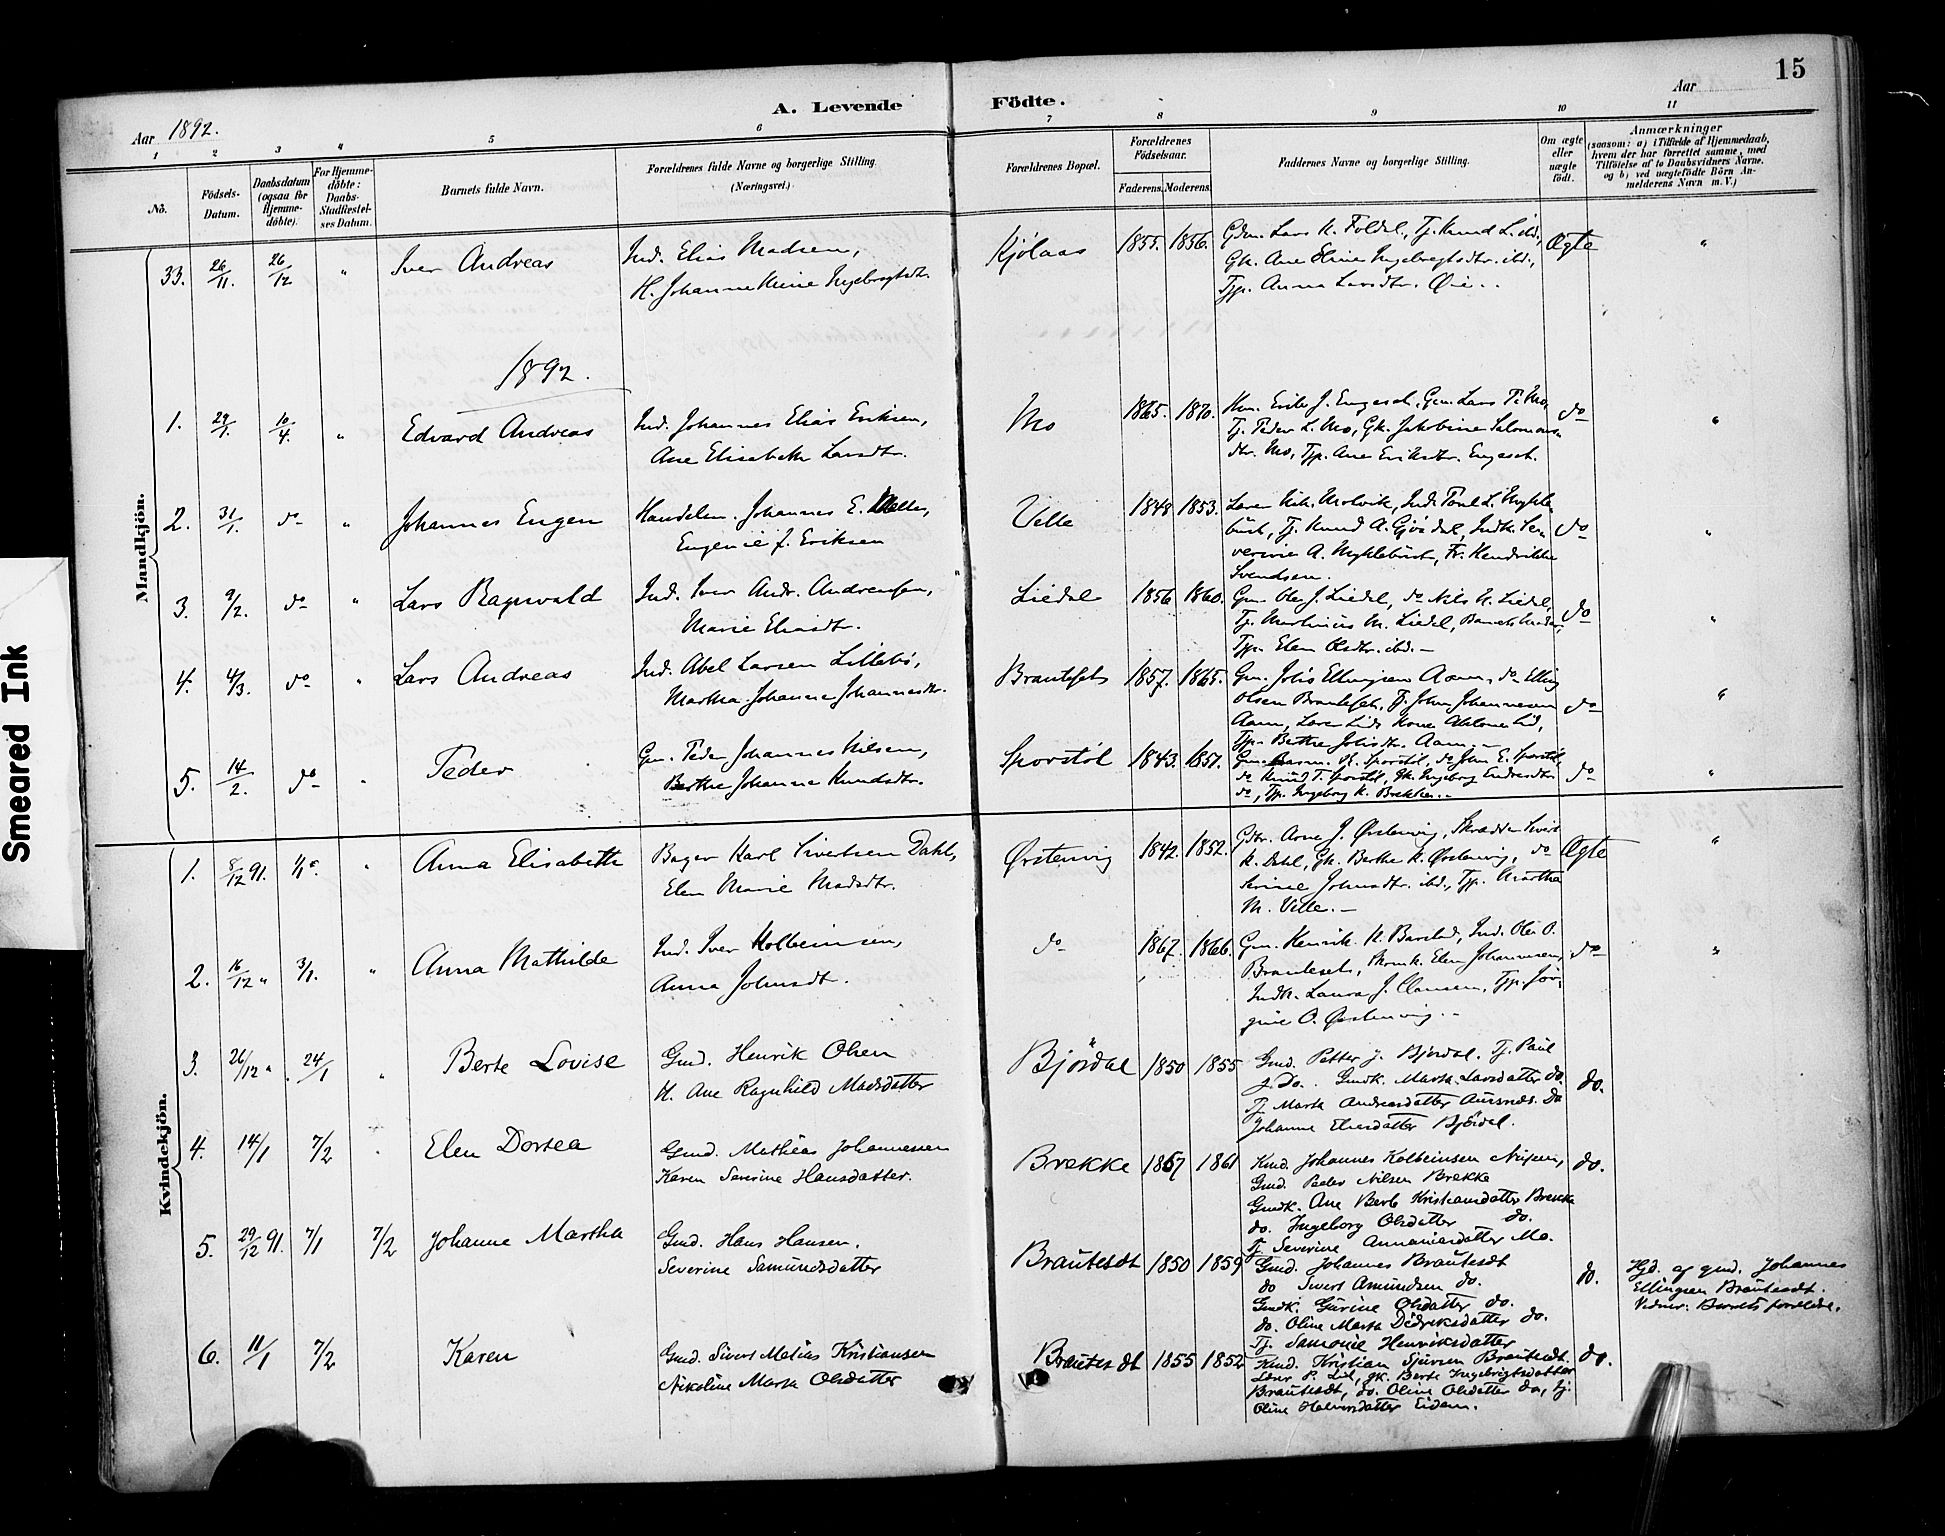 15
A. Levende Födte.
Aar 1892.
Aar
1 2 3 4 5 6 7 8 9 10 11
No.
Födsels-Datum.
Daabsdatum (ogsaa for Hjemme-döbte).
For Hjemme-döbte: Daabs-Stadfæstel-ses Datum.
Barnets fulde Navn.
Forældrenes fulde Navne og borgerlige Stilling (Næringsvei).
Forældrenes Bopæl.
Forældrenes Födselsaar.
Faderens. Moderens.
Faddernes Navne og borgerlige Stilling.
Om ægte eller uægte födt.
Anmærkninger
(saasom: a) i Tilfælde af Hjemmedaab,
hvem der har forrettet samme, med
Tilföielse af to Daabsvidners Navne.
og b) ved uægtefödte Börn An-
melderens Navn m. V.)
Mandkjön.
33. 26/11. 26/12 " Iver Andreas
Ind. Elias Madsen,
H. Johanne Ingebrigtsdtr.
Kjölaas 1855. 1856.
Gdm. Lars K. Foldal, Tj. Knud L. ibd.,
Gk. Ane Eline Ingebrigtsdtr. ibd.,
Tjp. Anna Larsdtr. Øie..
Ægte "
1892.
1. 29/1. 10/4. " Edvard Andreas
Ind. Johannes Elias Eriksen,
Ane Elisabeth Larsdtr.
Mo 1865. 1870.
Engeset, Gm. Lars P. Mo,
Tj. Peder L. Mo, Gk. Jakobine Salomons-
dtr. Mo, Tjp. Ane Eriksdtr. Engeset.
do "
2. 31/1. do " Johannes Eugen
Handelsm. Johannes E. Velle,
Eugenie f. Eriksen
Velle 1848 1853.
Molvik, Ind. Paul L. Mykle-
büst, Tj. Knud A. Gjördal, Indk. Se-
verine A. Myklebüst, Fr. Hendrikke
Svendsen.
do "
3. 9/2. do " Lars Ragnvald
Ind. Iver Andr. Andreassen,
Marie Eliasdtr.
Liedal 1856 1860.
Gm. Ole J. Liedal, do Nils N. Liedal,
Tj. Martinus M. Liedal, Barnets Moder,
Tjp. Elen Olsdtr. ibd. —
do "
4. 4/3. do " Lars Andreas
Ind. Abel Larsen Lillebö,
Martha Johanne Johannesdtr.
Brauteset 1857. 1865.
Gm. Johs Ellingsen Aam, do Elling
Olsen Brauteset, Tj. John Johannesen
Aam, Lærer Lids Kone Lid,
Tjp. Berthe Johsdtr. Aam. —
do "
5. 14/2. do " Peder
Gm. Peder Johannes Nilsen,
Berthe Johanne Knudsdtr.
Sporstöl 1843. 1857.
Gm. Rasm. R. Sporstöl, do John E. Sporstöl,
do Knud T. Sporstöl, Gk. Ingeborg Endresdtr.
do, Tjp. Ingeborg K. Brekke. —
do "
Kvindekjön.
1. 8/12 91. " Anna Elisabeth
Bager Karl Sivertsen Dahl,
Elen Marie Madsdtr.
Ørstenvig 1842. 1852.
Gdbr. Arne J. Ørstenvig, Skrædder Sivert
K. Dahl, Gk. Berthe K. Ørstenvig, do
Serine Johnsdtr. ibd., Tjp. Martha
M. Velle. —
Ægte "
2. 16/12 " 3/1. " Anna Mathilde
Ind. Iver Kolbeinsen,
Anna Johnsdtr.
do 1867. 1866.
Gm. Henrik K. Barstad, Ind. Ole O.
Brauteset, Elen Johannesen,
Indk. Laura J. Clausen, Tjp. Jör-
gine O. Ørstenvig. —
do "
3. 26/12 " 24/1 " Berte Lovise
Gmd. Henrik Olsen
H. Ane Ragnhild Madsdatter
Björdal 1850 1855
Gmd. Petter J. Björdal. Tj. Paul
J. Do. Gmdk. Marta Larsdatter do.
Tj. Marta Andreasdatter Aursnes. Do
Johanne Eliasdatter Björdal.
do.
4. 14/1 7/2 " Elen Dortea
Gmd. Mathias Johannessen
Karen Severine Hansdatter.
Brekke 1857 1861
Kmd. Johannes Kolbeinsen Nupen,
Gmd. Peder Nilsen Brekke
Gmdk. Ane Berte Kristiansdatter Brekke
do. Ingeborg Olsdatter do.
Tj. Severine Annaniasdatter Mo.
do.
5. 29/12 91. 7/1 7/2 Johanne Martha
Gmd. Hans Hansen.
Severine Samundsdatter
Brautesdt 1850 1859
Gmd. Johannes Brautesdt
do Sivert Amundsen do.
Gmdk. Gurine Olsdatter do.
do. Oline Marta Didriksdatter do.
Tj. Samonie Henriksdatter
do.
Hjd. af gmd. Johannes
Ellingsen Brautesdt.
Vidner: Barnets forældre.
6. 11/1 7/2 Karen
Gmd. Sivert Matias Kristiansen
Nikoline Marta Olsdatter
Brautesdt 1855 1852
Kmd. Kristian Sjursen Brautesdt.
Lærer P. Lid, gk. Berte Ingebrigtsdatter
Brautesdt, do. Oline Olsdatter do, tj.
Oline Halvorsdatter Eidem.
do.
Smeared Ink